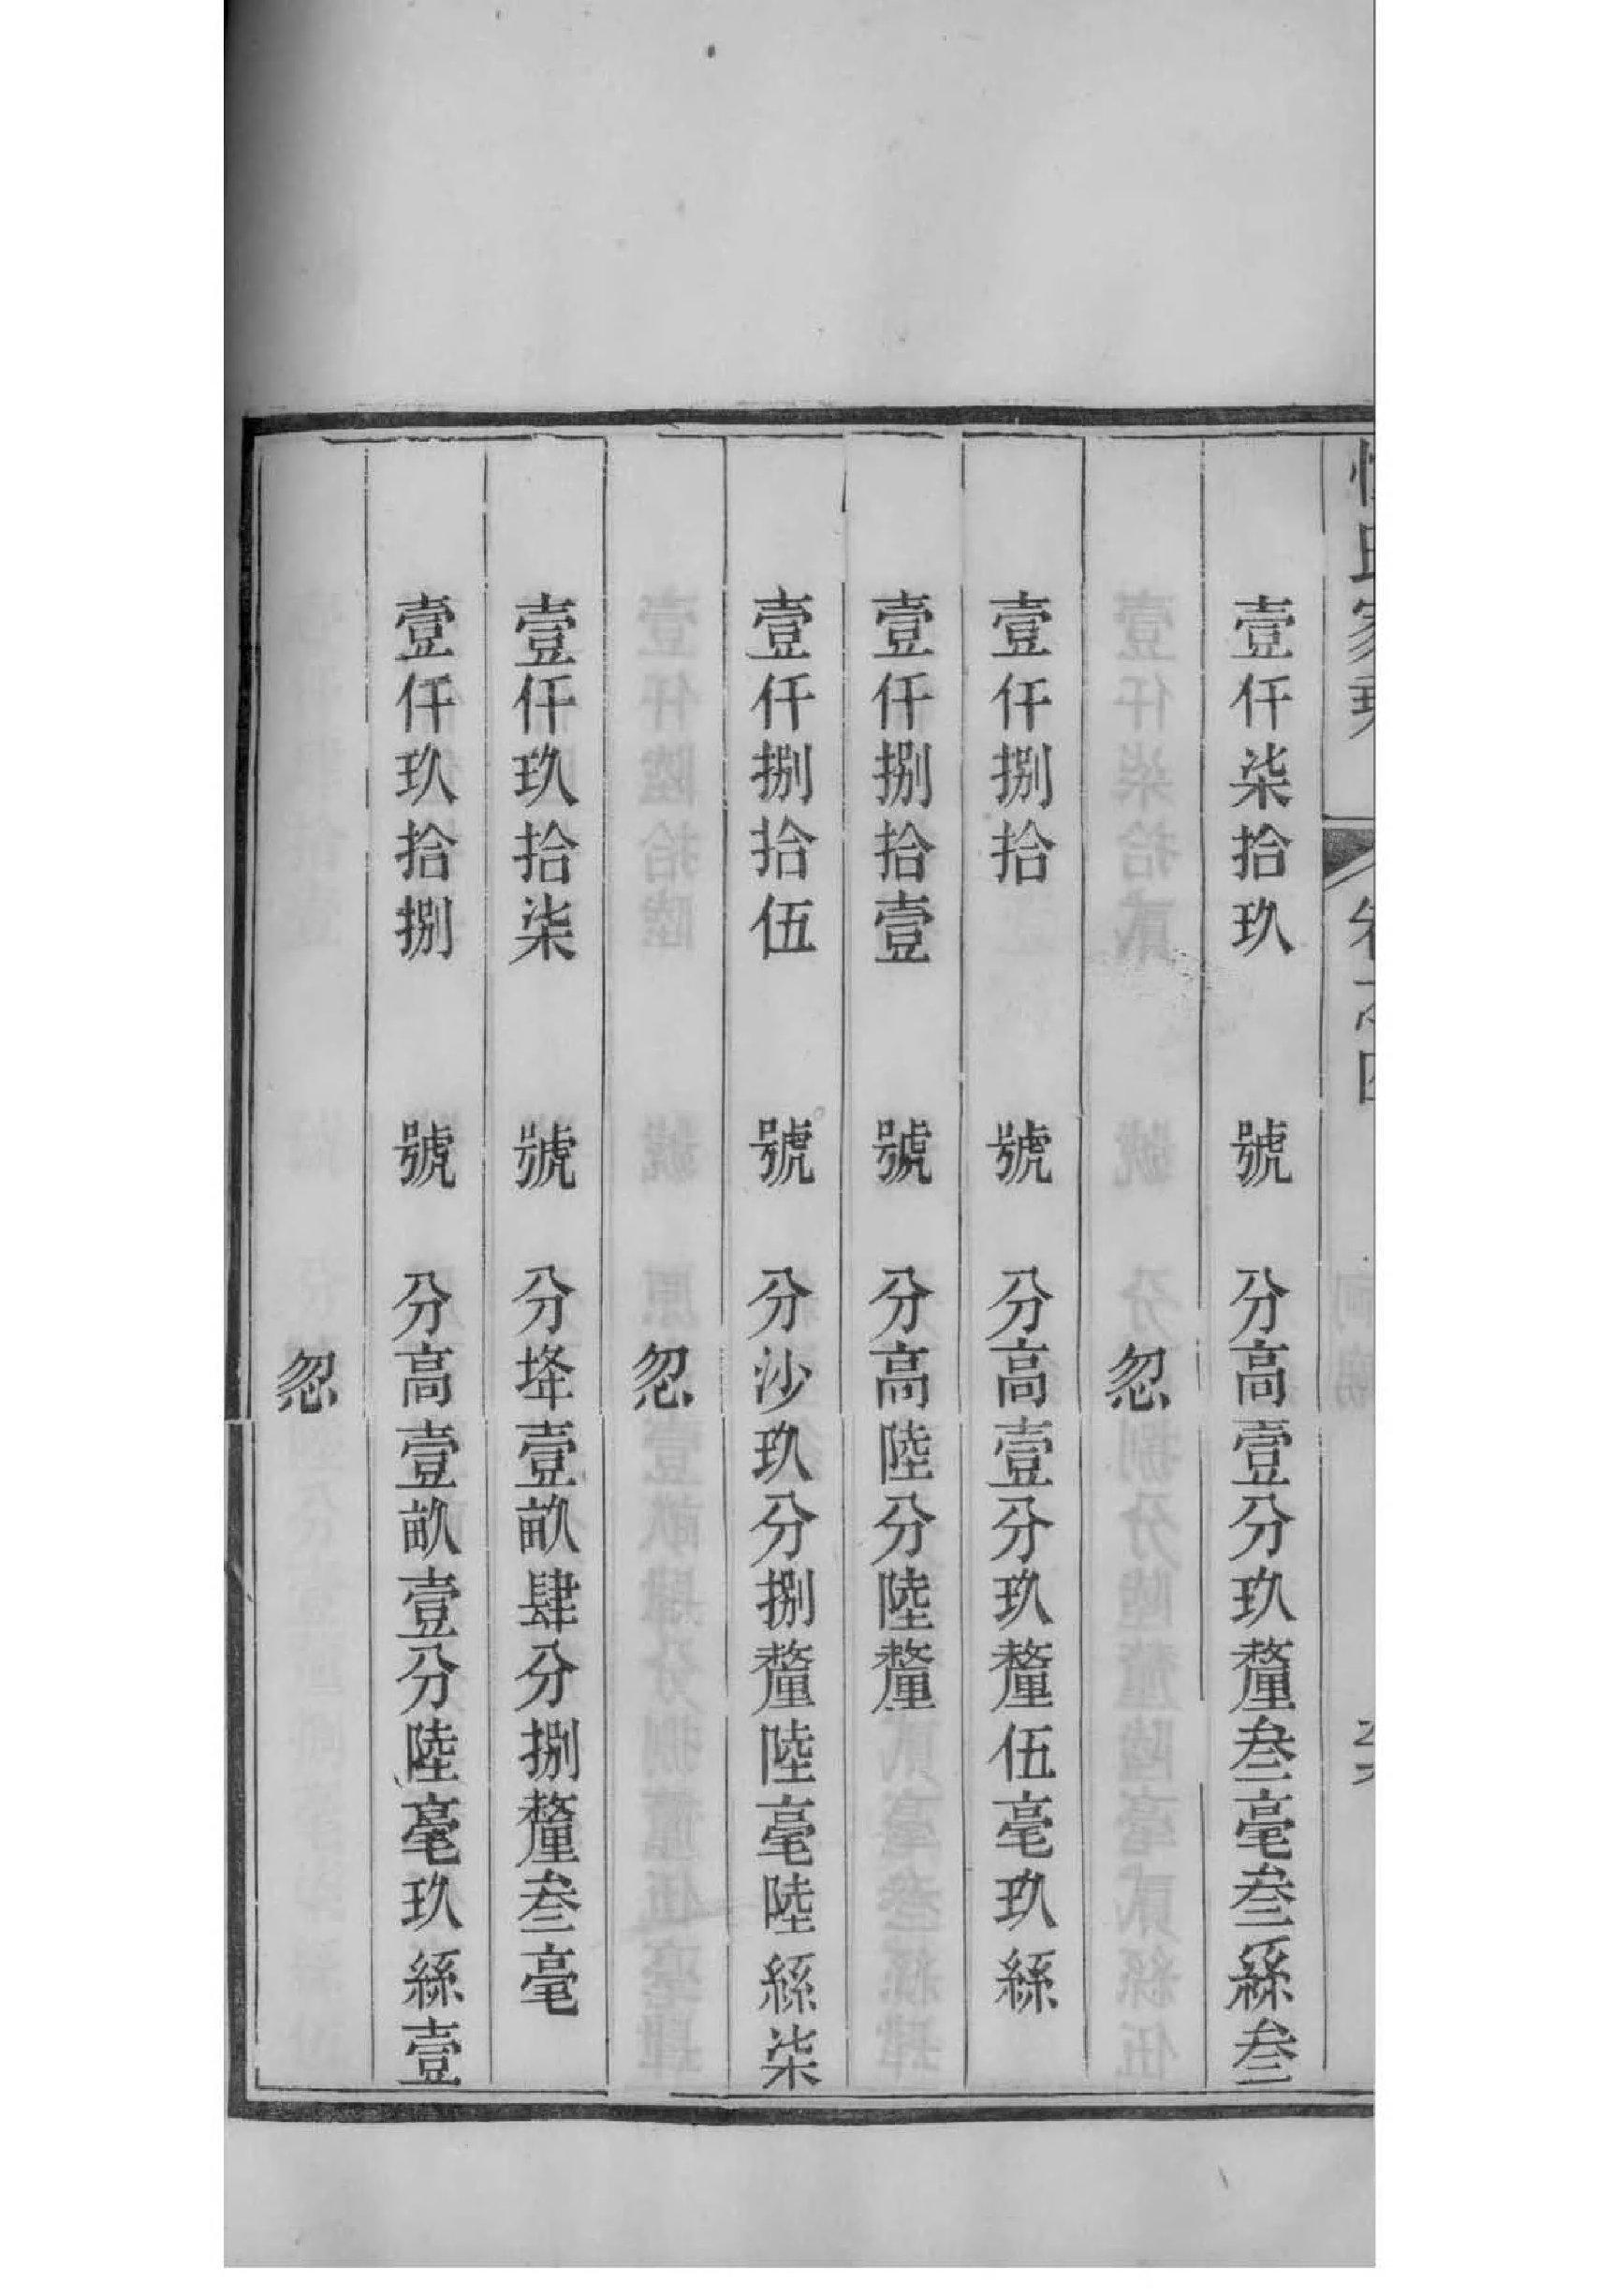 家乘 卷之四
壹仟柒拾玖 號 分高壹分玖釐叁毫叁絲叁
忽
壹仟捌拾 號 分高壹分玖釐伍毫玖絲
壹仟捌拾壹 號 分高陸分陸釐
壹仟捌拾伍 號 分沙玖分捌釐陸毫陸絲柒
忽
壹仟玖拾柒 號 分埄壹畝肆分捌釐叁毫
壹仟玖拾捌 號 分高壹畝壹分陸毫玖絲壹
忽